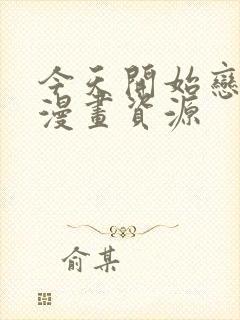 今天開始戀
漫畫資源
俞某